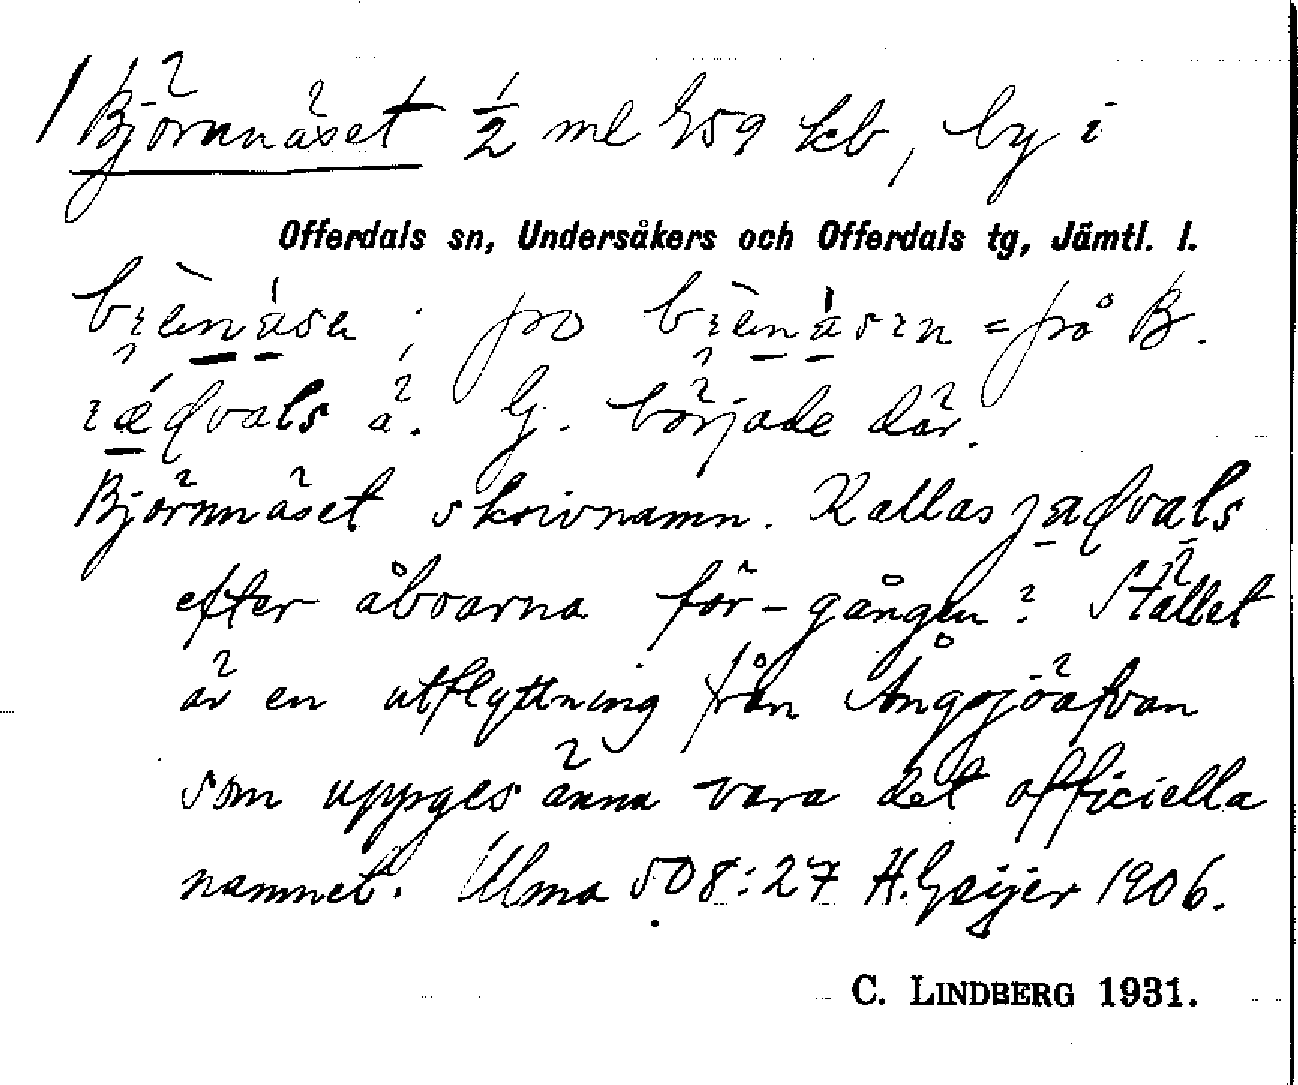 Björnnäset ½ ml G59 kb, by i
Offerdals sn, Undersåkers och Offerdals tg, Jämtl. l.
; på = på B.
G. började där.
Björnnäset skrivnamn. Kallas
efter åboarna för-gången? Stället
är en utflyttning från
som uppges ännu vara det officiella
namnet. Ulma 508:27 H. Geijer 1906.
C. LINDBERG 1931.